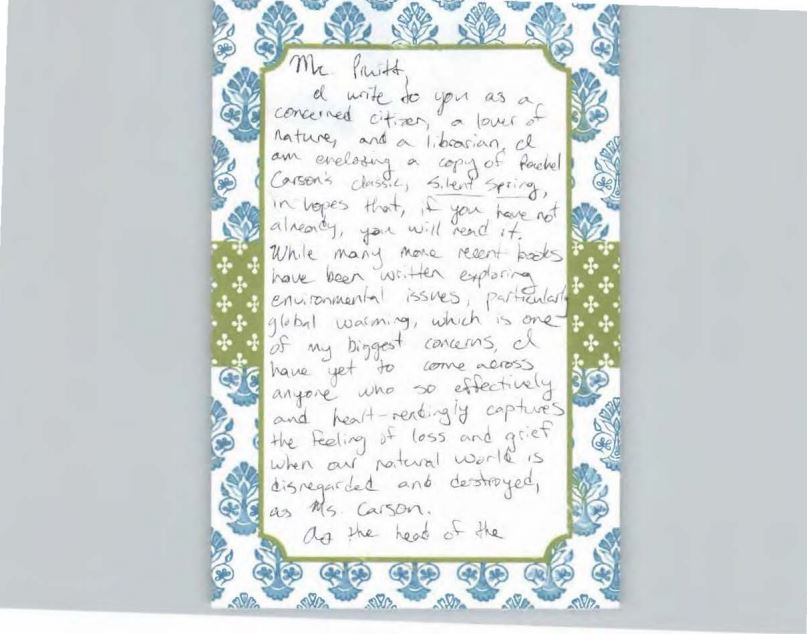 Mr. Pruitt,
I write to you as a
concerned citizen, a lover of
nature, and a librarian. I
am enclosing a copy of Rachel
Carson's classic, Silent Spring,
in hopes that, if you have not
already, you will read it.
While many more recent books
have been written exploring
environmental issues, particularly
global warming, which is one
of my biggest concerns, I
have yet to come across
anyone who so effectively
and heart-rendingly captures
the feeling of loss and grief
when our natural world is
disregarded and destroyed,
as Ms. Carson.
As the head of the